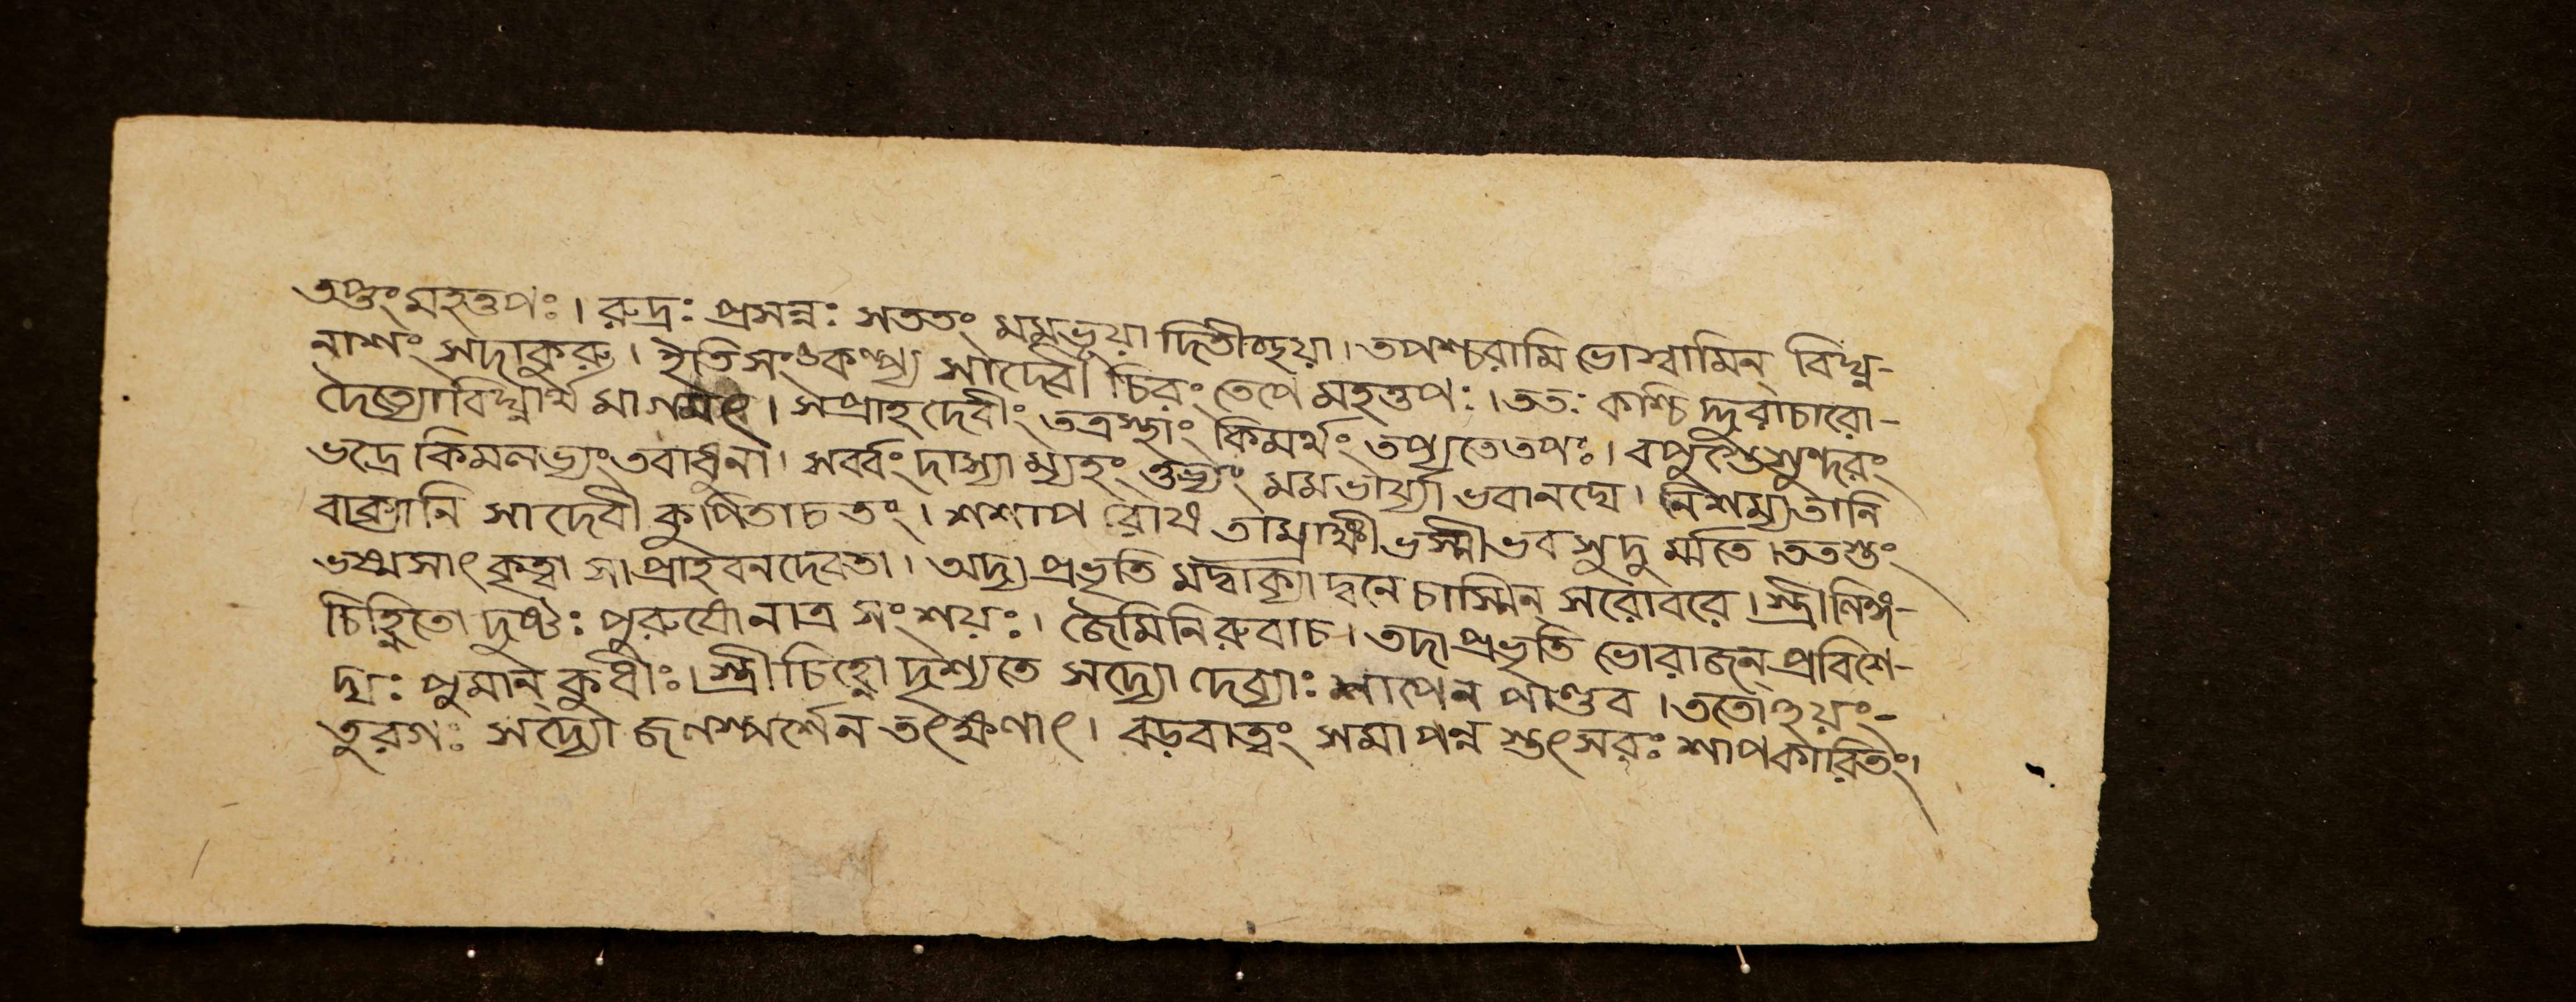 তপ্তুং মহত্তপঃ। রুদ্রঃ প্রসন্নঃ সততং মমভূয়া দিতীচ্ছয়া। তপশ্চরামি ভোস্বামিন্ বিঘ্ন-
নাশং সদাকুরু। ইতিসংকল্প্য সাদেবী চিরং তেপে মহত্তপঃ। ততঃ কশ্চি দ্দুরাচারো-
দৈত্যোবিঘ্নার্থ মাগমৎ। সপ্রাহ দেবীং তত্রস্থাং কিমর্থং তপ্যতেতপঃ। বপুস্তেসুন্দরং
ভদ্রে কিমলভ্যং তবাধুনা। সর্ব্বং দাস্যা ম্যহং তুভ্যং মমভার্য্যা ভবানঘে। নিশম্যতানি
বাক্যানি সা দেবী কুপিতাচ তং। শশাপ রোষ তাম্রাক্ষী ভস্মীভব সুদু র্ম্মতে। ততস্তং
ভস্মসাৎ কৃত্বা সা প্রাহবনদেবতা। অদ্য প্রভৃতি মদ্বাক্যা দ্বনে চাস্মিন্ সরোবরে। স্ত্রীলিঙ্গ-
চিহ্নিতো দুষ্টঃ পুরুষোনাত্র সংশয়ঃ। জৈমিনি রুবাচ। তদা প্রভৃতি ভোরাজন্ প্রবিশে-
দ্যঃ পুমান্ কুধীঃ। স্ত্রীচিহ্নো দৃশ্যতে সদ্যো দেব্যাঃ শাপেন পাণ্ডব। ততোহয়ং-
তুরগঃ সদ্যো জলস্পর্শেন তৎক্ষণাৎ। বড়বাত্বং সমাপন্ন স্তৎসরঃ শাপকারিতং।